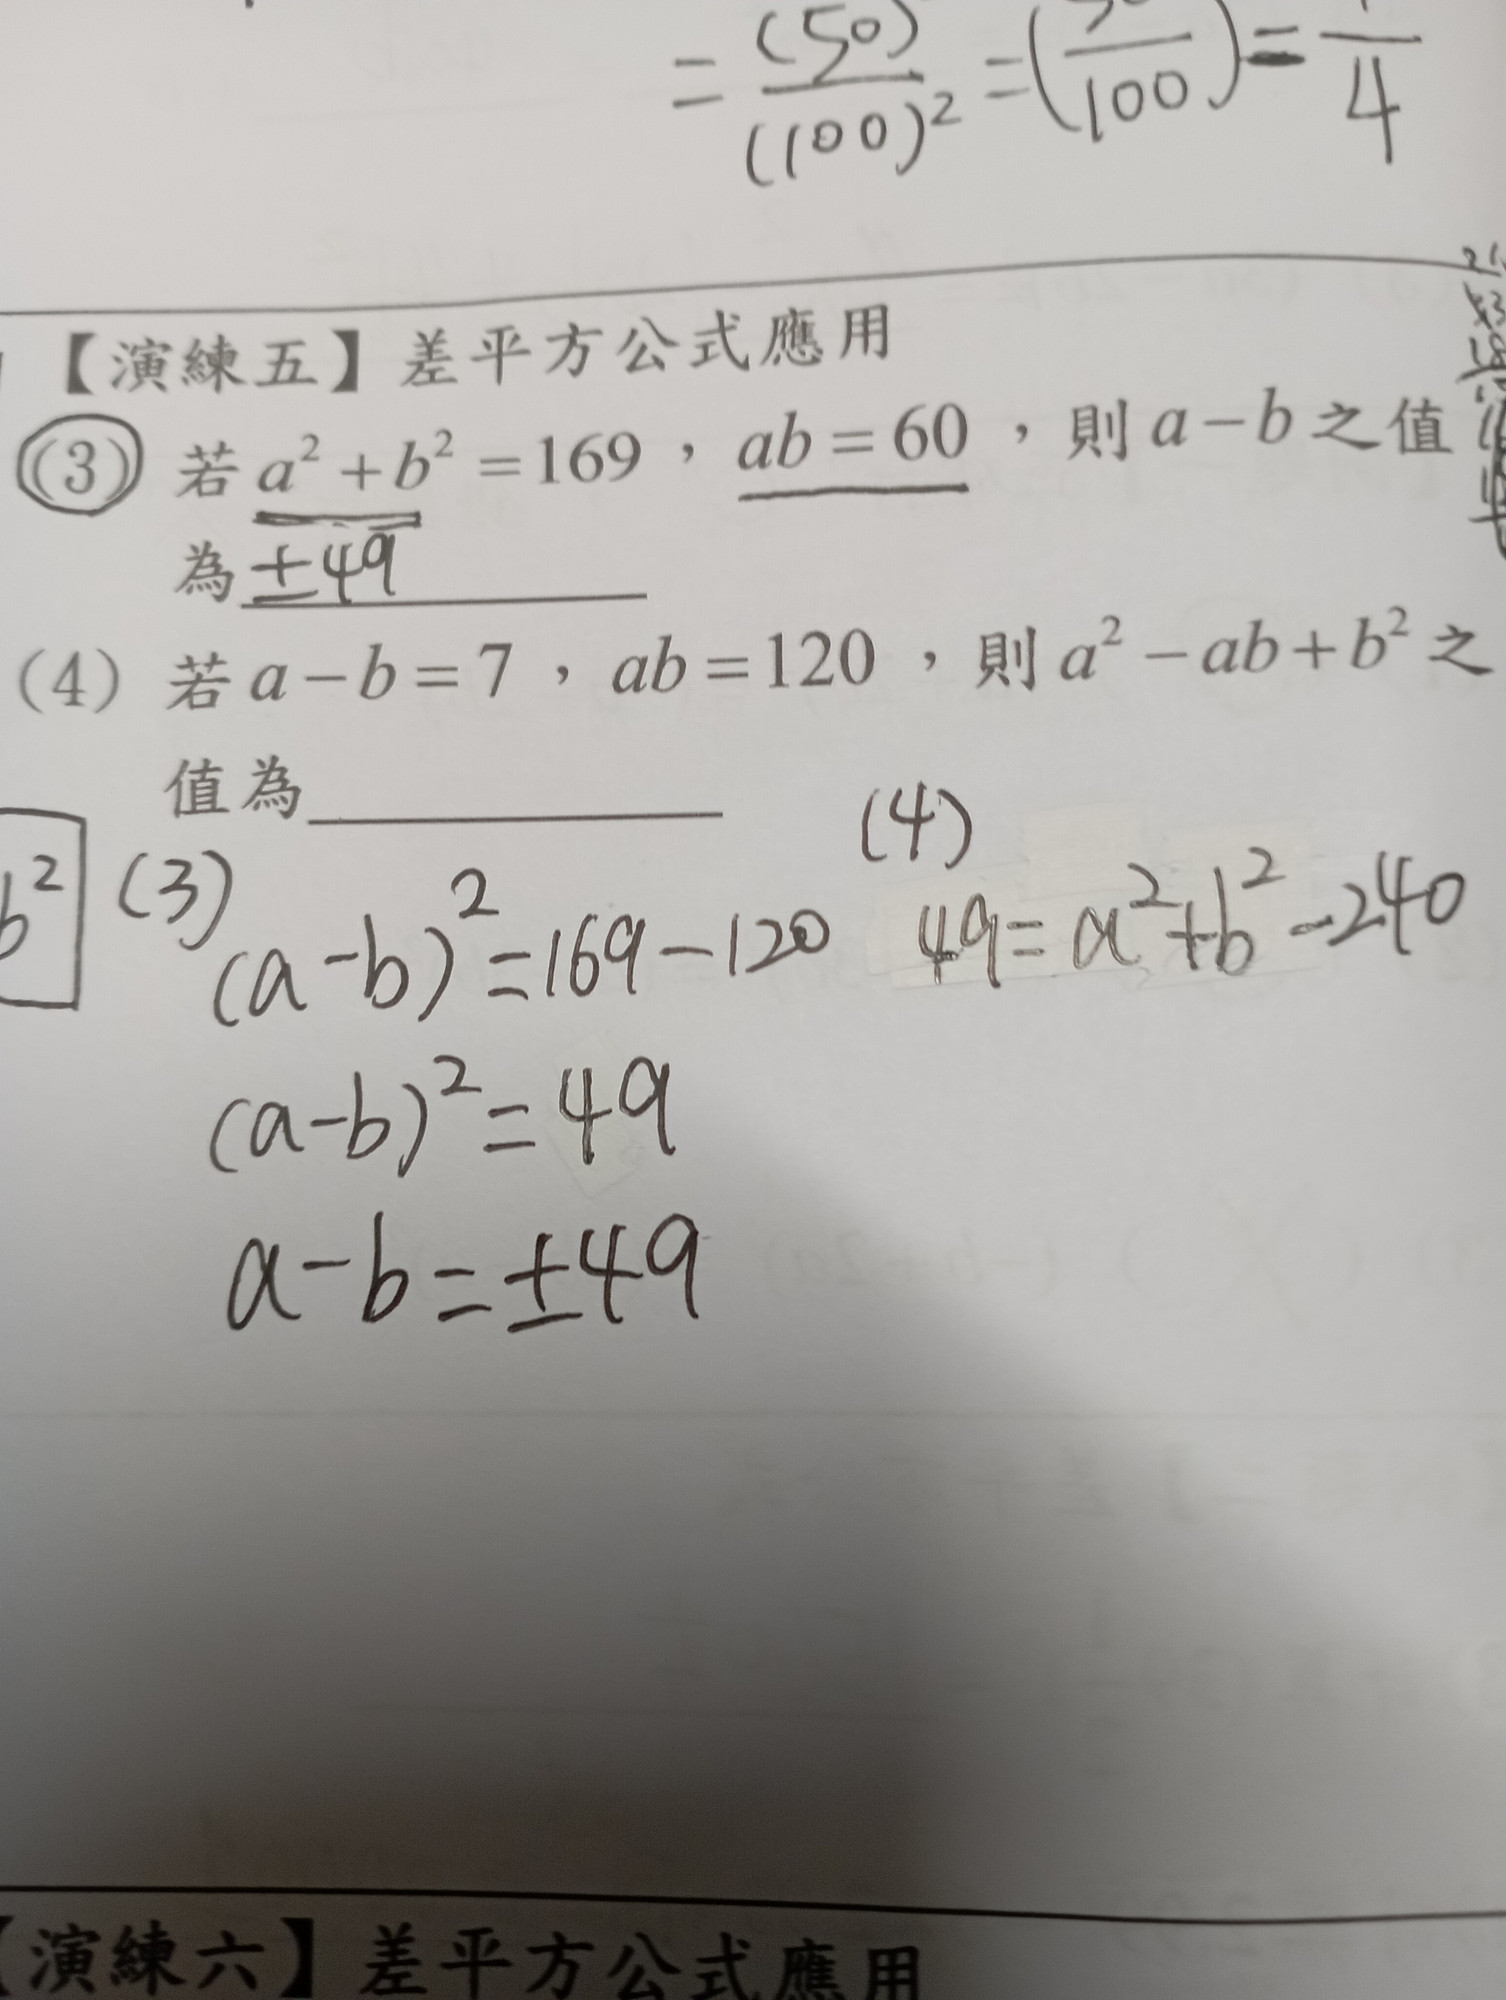 = (50) / (100)² = ( / 100) = / 4
【演練五】差平方公式應用
(3) 若 a² + b² = 169，ab = 60，則 a − b 之值
為 ±49
(4) 若 a − b = 7，ab = 120，則 a² − ab + b² 之
值為
b²
(3)
(a-b)² = 169 - 120
(a-b)² = 49
a-b = ±49
(4)
49 = a² + b² - 240
【演練六】差平方公式應用